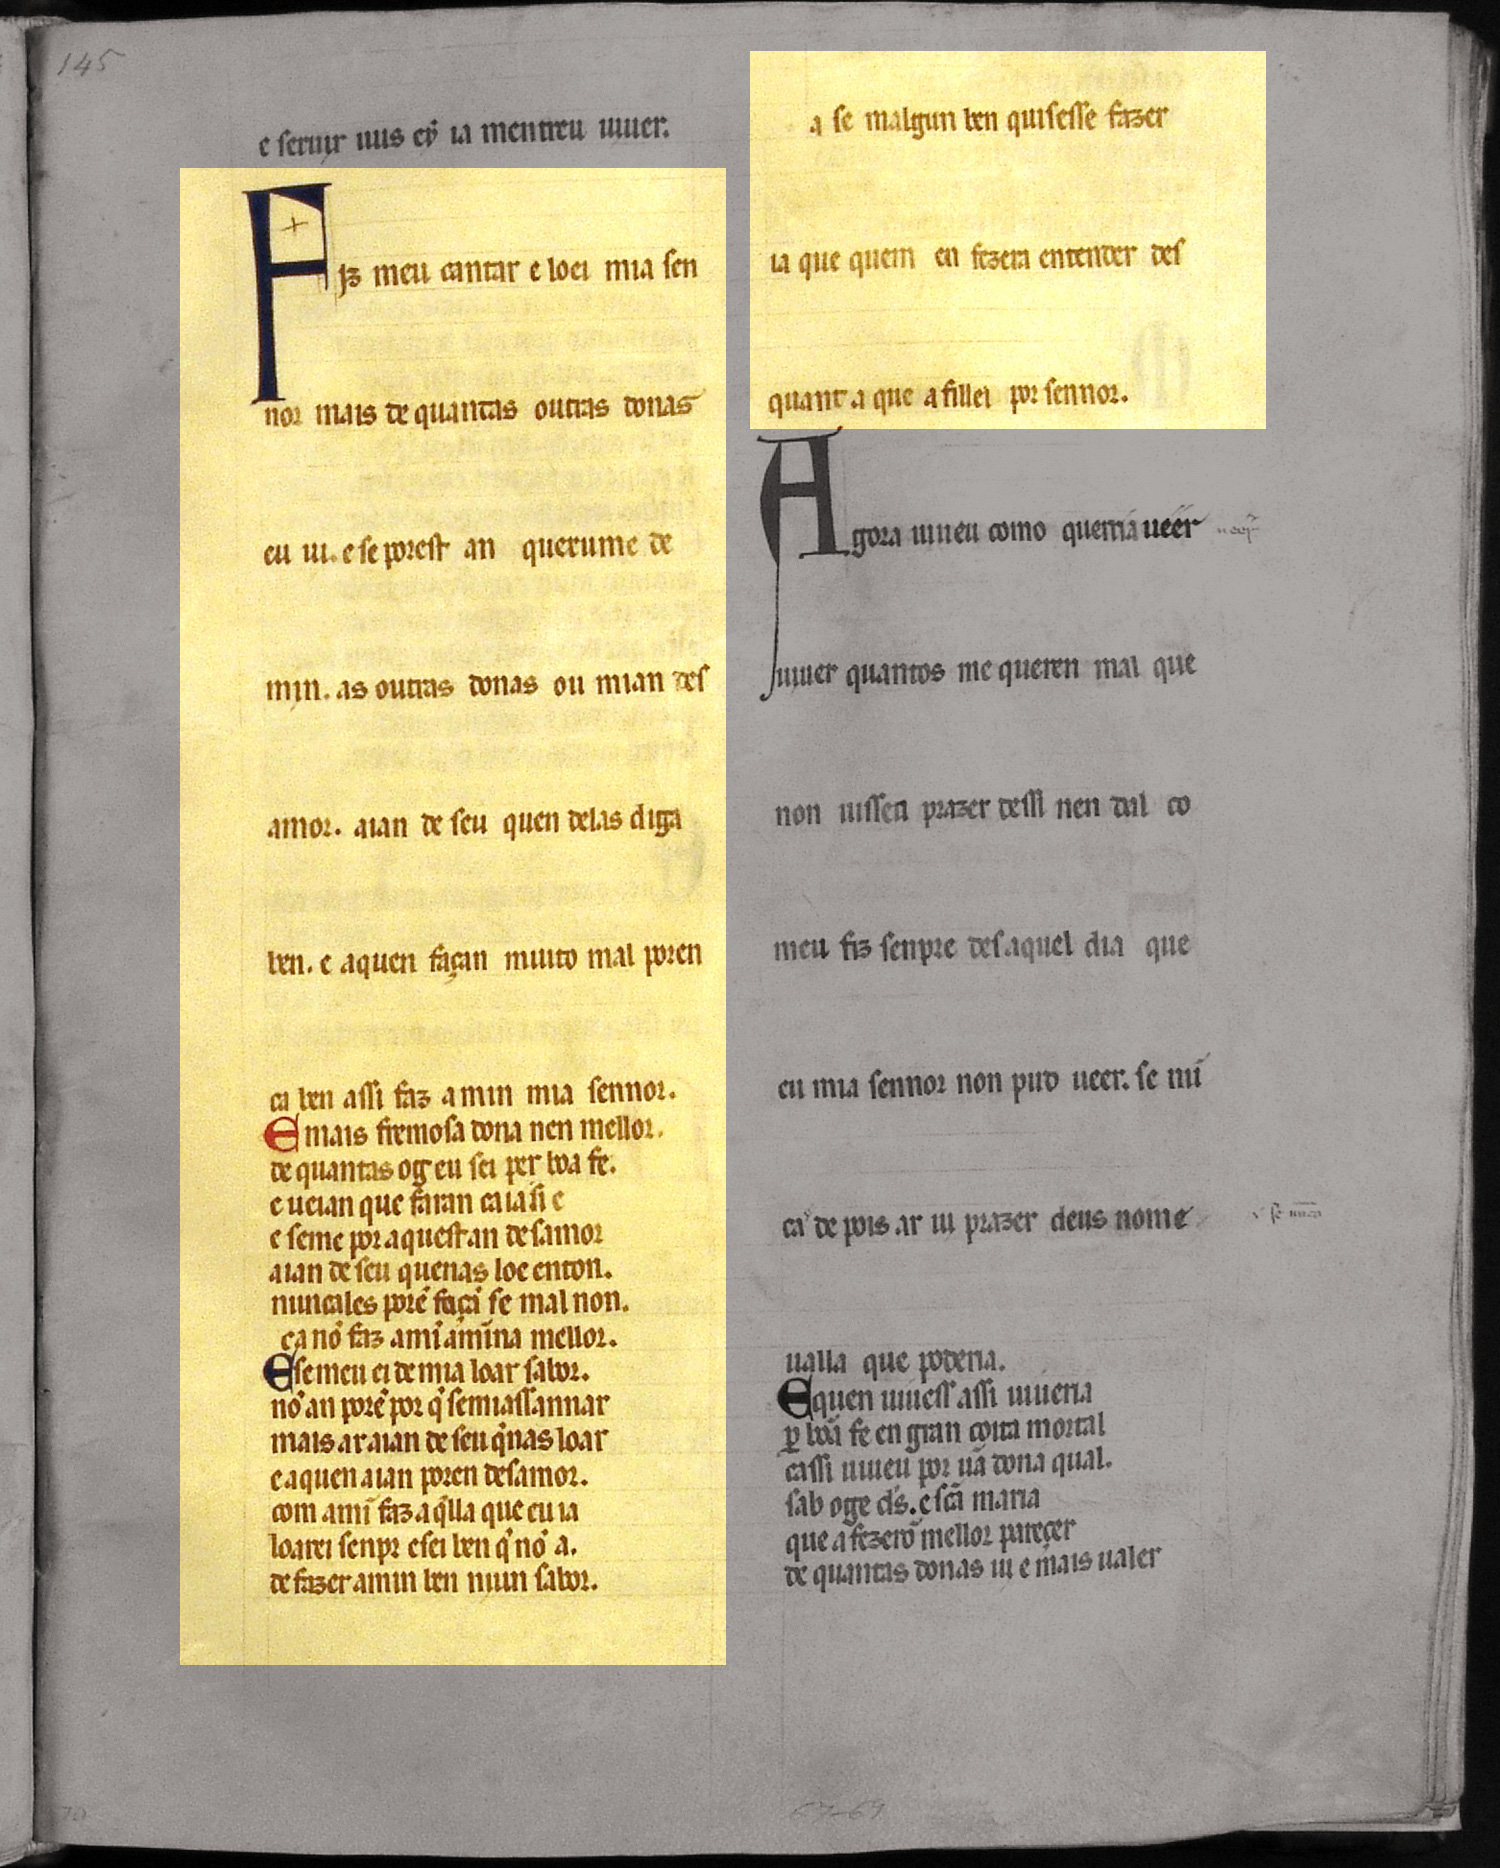 145
e seruir uus ey ia mentreu uiuer.
Fiz meu cantar e loei mia sen
nor mais de quantas outras donas
eu ui. e se porest an queixume de
min. as outras donas ou mian des
amor. aian de seu quen delas diga
ben. e aquen façan muito mal poren
ca ben assi faz a min mia sennor.
E mais fremosa dona nen mellor.
de quantas og eu sei per boa fe.
e ueian que faran ca ia si e
e seme por aquest an desamor
aian de seu quenas loe enton.
nuncalles porẽ façã se mal non.
ca nõ faz a mĩ a mĩna mellor.
E se meu ei de mia loar sabor.
nõ an porẽ por q̃ sennassannar
mais ar aian de seu q̃nas loar
e aquen aian poren desamor.
com a mĩ faz a q̃lla que eu ia
loarei senpr e sei ben q̃ nõ a.
de fazer a min ben niun sabor.
a se malgun ben quisesse fazer
ia que quem eu fezera entender des
quant a que a fillei por sennor.
Agora uiueu como querria ueér
uiuer quantos me queren mal que
non uissen prazer dessi nen dal co
meu fiz senpre des aquel dia que
eu mia sennor non pud ueer. se nũ
ca de pois ar ui prazer deus nome
ualla que poderia.
E quen uiuess assi uiueria
ꝑ bõa fe en gran coita mortal
cassi uiueu por ũa dona qual.
sab oge d̃s. e sc̃a maria
que a fezerõ mellor pareçer
de quantas donas ui e mais ualer
67-69